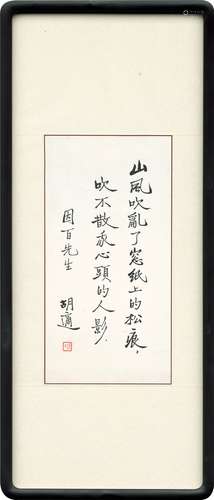 山風吹亂了窓紙上的松痕，
吹不散我心頭的人影．
因百先生
胡適